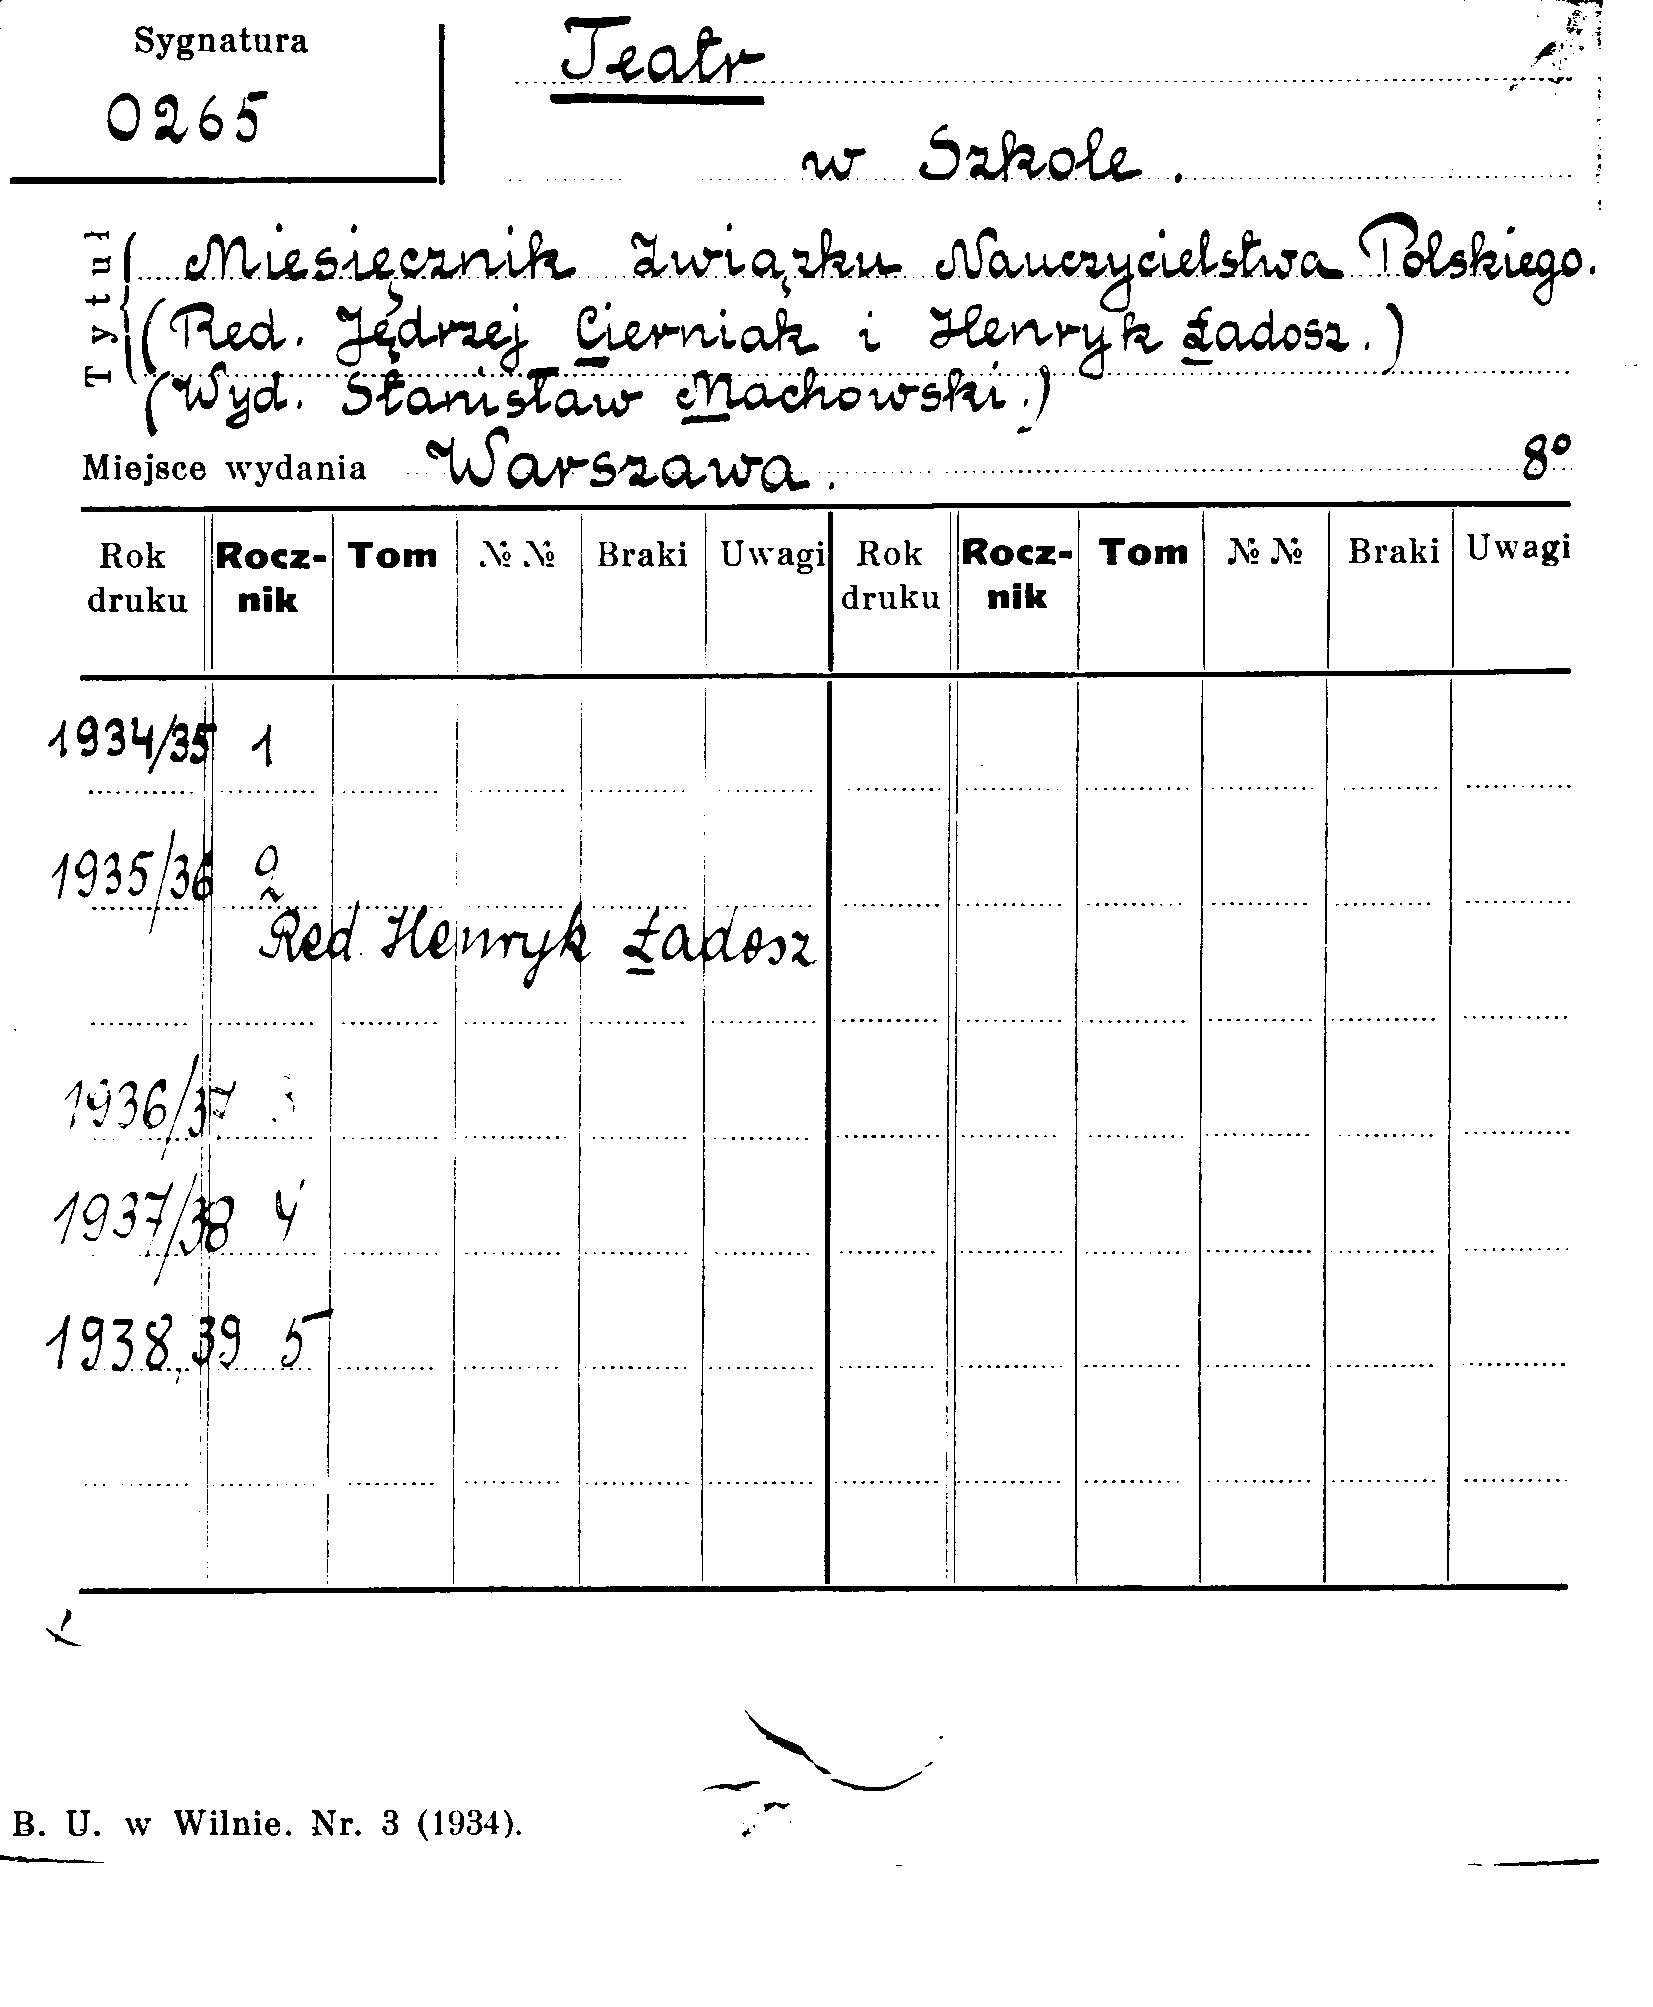 Sygnatura
0265
Teatr
w Szkole.
Tytuł
Miesięcznik Związku Nauczycielstwa Polskiego.
(Red. Jędrzej Cierniak i Henryk Ładosz.)
(Wyd. Stanisław Machowski.)
Miejsce wydania Warszawa. 8º
Rok druku Rocz-nik Tom № № Braki Uwagi Rok druku Rocz-nik Tom № № Braki Uwagi
1934/35 1
1935/36 2
Red. Henryk Ładosz
1936/37 3
1937/38 4
1938/39 5
B. U. w Wilnie. Nr. 3 (1934).